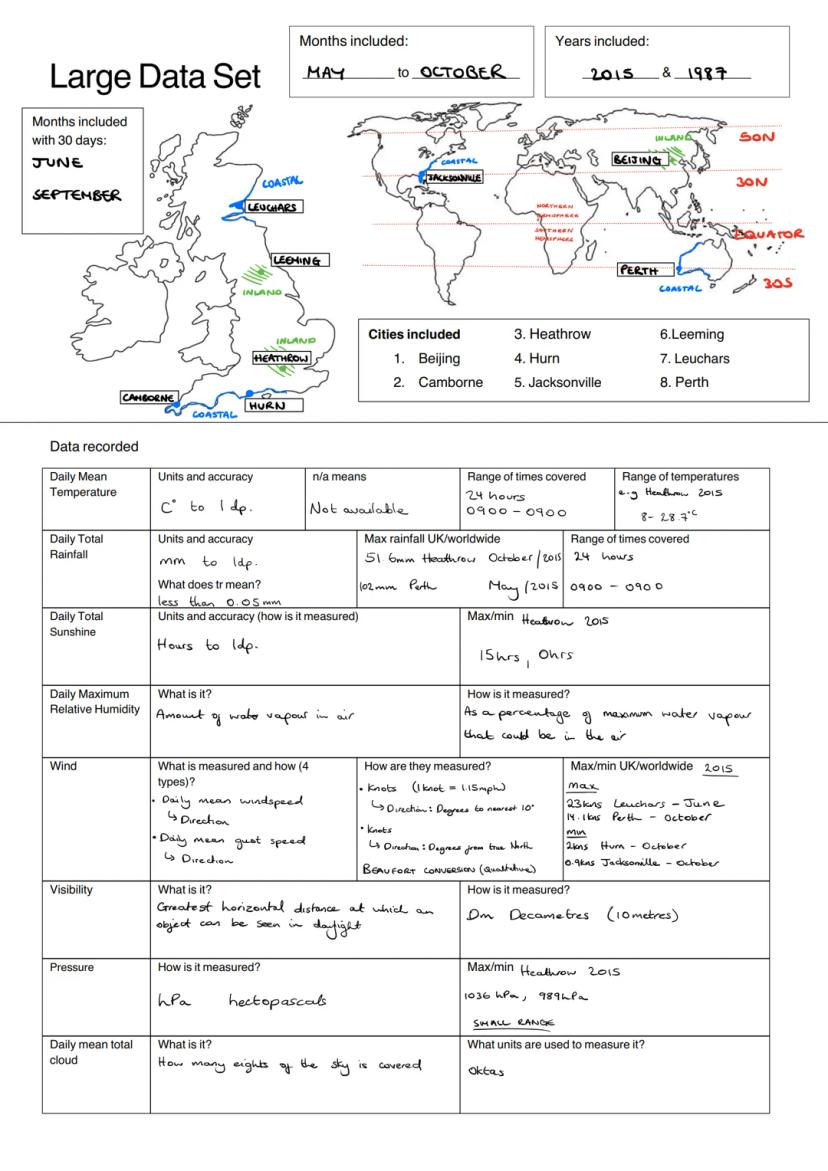 Large Data Set
Months included:
MAY to OCTOBER
Years included:
2015 & 1987
Months included
with 30 days:
JUNE
SEPTEMBER
COASTAL
LEUCHARS
LEEMING
INLAND
INLAND
HEATHROW
CAMBORNE
COASTAL
HURN
INLAND
BEIJING
50N
COASTAL
JACKSONVILLE
30N
NORTHERN
HEMISPHERE
SOUTHERN
HEMISPHERE
EQUATOR
PERTH
COASTAL
30S
Cities included
1. Beijing
2. Camborne
3. Heathrow
4. Hurn
5. Jacksonville
6.Leeming
7. Leuchars
8. Perth
Data recorded
Daily Mean
Temperature
Units and accuracy
C° to 1dp.
n/a means
Not available
Range of times covered
24 hours
0900 - 0900
Range of temperatures
e.g Heathrow 2015
8- 28.7°C
Daily Total
Rainfall
Units and accuracy
mm to 1dp.
What does tr mean?
less than 0.05mm
Max rainfall UK/worldwide
51 6mm Heathrow October/2015
102mm Perth May/2015
Range of times covered
24 hours
0900 - 0900
Daily Total
Sunshine
Units and accuracy (how is it measured)
Hours to 1dp.
Max/min Heathrow 2015
15hrs, 0hrs
Daily Maximum
Relative Humidity
What is it?
Amount of water vapour in air
How is it measured?
As a percentage of maximum water vapour
that could be in the air
Wind
What is measured and how (4
types)?
• Daily mean windspeed
↳ Direction
• Daily mean gust speed
↳ Direction
How are they measured?
• Knots (1knot = 1.15mph)
↳ Direction: Degrees to nearest 10°
• Knots
↳ Direction: Degrees from true North
BEAUFORT CONVERSION (Qualitative)
Max/min UK/worldwide 2015
max
23kns Leuchars - June
14.1kns Perth - October
min
2kns Hurn - October
0.9kns Jacksonville - October
Visibility
What is it?
Greatest horizontal distance at which an
object can be seen in daylight
How is it measured?
Dm Decametres (10metres)
Pressure
How is it measured?
hPa hectopascals
Max/min Heathrow 2015
1036 hPa, 989hPa
SMALL RANGE
Daily mean total
cloud
What is it?
How many eights of the sky is covered
What units are used to measure it?
Oktas